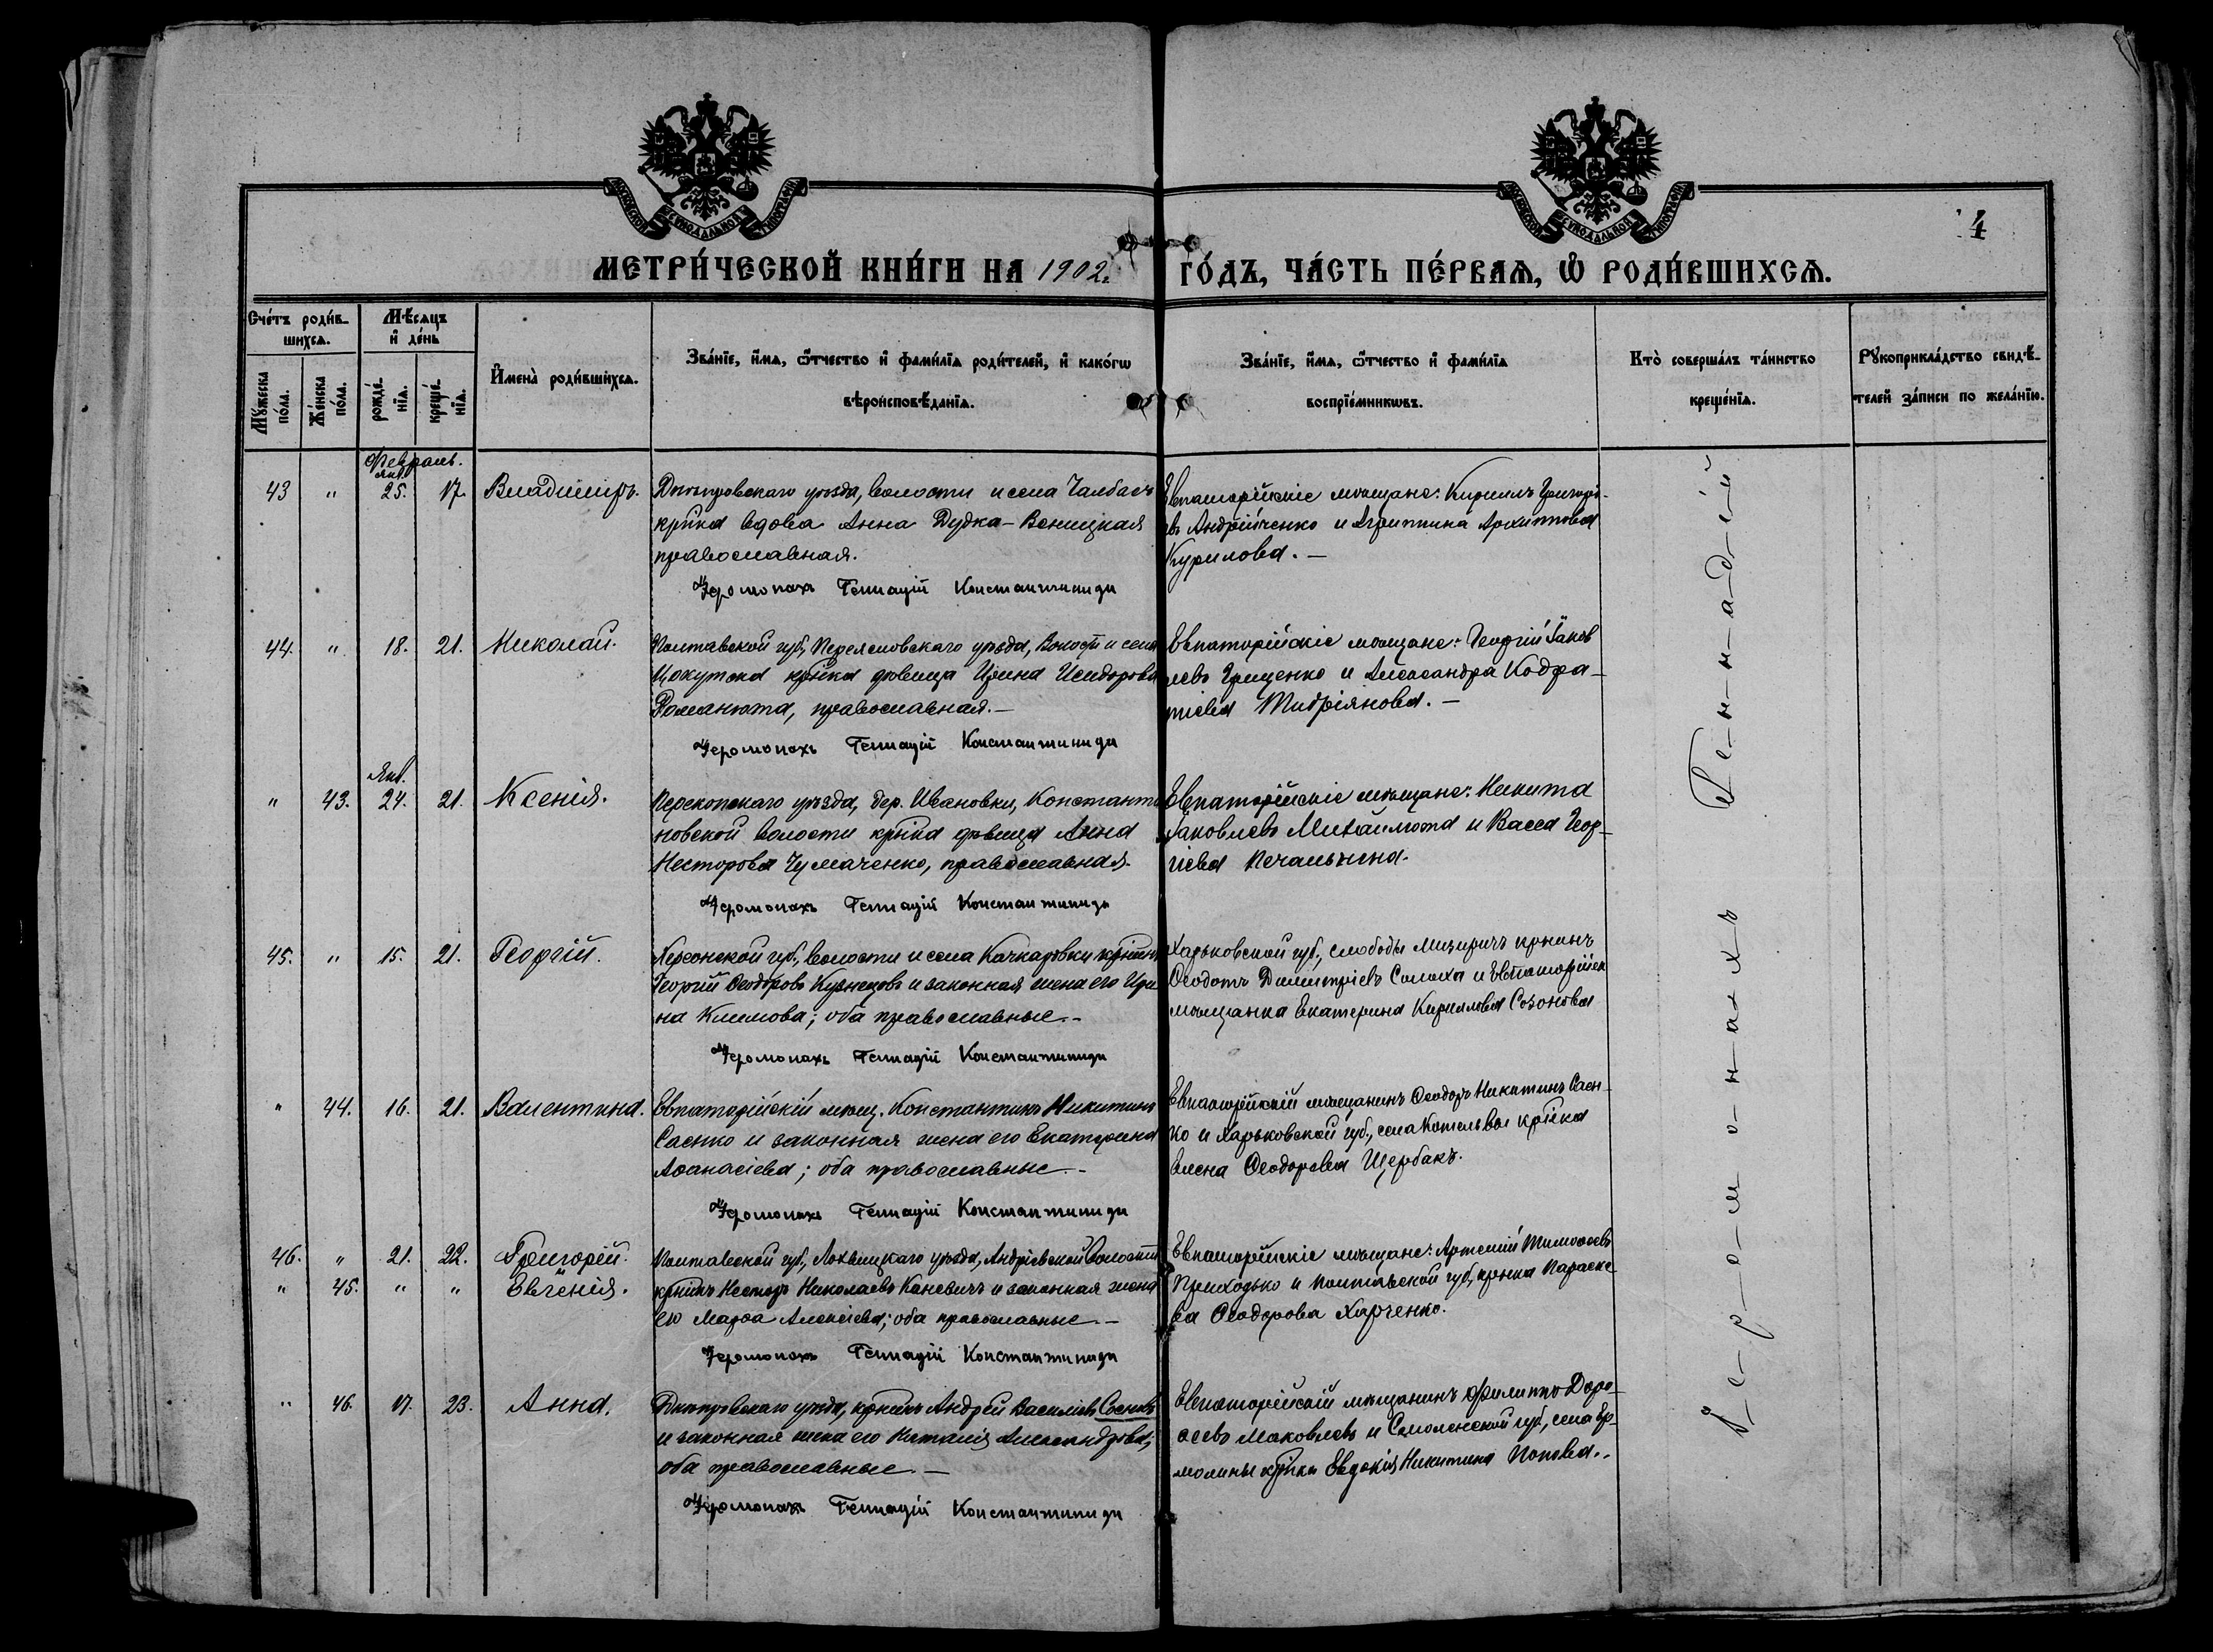 4
МЕТРИ́ЧЕСКОЙ КНИ́ГИ НА 1902 г.
ГО́ДЪ, ЧА́СТЬ ПЕ́РВАѦ, Ѿ РОДИ́ВШИХСѦ.
Сче́тъ роди́в-
шихсѧ.
Мѣ́сѧцъ
и҆ де́нь
И҆мена̀ роди́вшихсѧ.
Зва́нїе, и҆́мѧ, ѻ҆́тчество и҆ фами́лїѧ роди́телей, и҆ како́гѡ
вѣроисповѣ́данїѧ.
Зва́нїе, и҆́мѧ, ѻ҆́тчество и҆ фами́лїѧ
воспрїе́мникѡвъ.
Кто̀ соверша́лъ та́инство
креще́нїѧ.
Рꙋкоприкла́дство свидѣ́-
телей за́писи по жела́нїю.
Мꙋ́жеска
по́ла.
Же́нска
по́ла.
рожде́-
нїѧ.
креще́-
нїѧ.
Февраль.
Янв.
43 " 25. 17. Владиміръ.
Днѣпровскаго уѣзда, волости и села Чалбасъ
кр̃нка вдова Анна Дудка-Веницкая
православная.
Іеромонахъ Геннадій Константиниди
Евпаторійскіе мѣщане: Кириллъ Григорі-
евъ Андрійченко и Агриппина Архиппова
Курилова. –
44. " 18. 21. Николай.
Полтавской губ., Переясловскаго уѣзда, Волости и села
кр̃нка дѣвица Ирина Исидорова
Романюта, православная. –
Іеромонахъ Геннадій Константиниди
Евпаторійскіе мѣщане: Георгій Іаков
левъ Гриценко и Александра Кодра-
тіева
Янв.
" 43. 24. 21. Ксенія.
Перекопскаго уѣзда, дер. Ивановки, Константи
новской волости кр̃нка дѣвица Анна
Несторова Чумаченко, православная.
Іеромонахъ Геннадій Константиниди
Евпаторійскіе мѣщане: Никита
Іаковлевъ и Васса Геор-
гіева Печальнина.
45. " 15. 21. Георгій.
Херсонской губ., волости и села Качкаровки кр̃нинъ
Георгій Ѳеодоровъ Кузнецовъ и законная жена его Ири
на Климова; оба православные. –
Іеромонахъ Геннадій Константиниди
Харьковской губ., слободы Мизиричъ крнинъ
Ѳеодотъ Димитріевъ Солоха и Евпаторійск
мѣщанка Екатерина Кириллова Созонова
" 44. 16. 21. Валентина.
Евпаторійскій мѣщ. Константинъ Никитинъ
Саенко и законная жена его Екатерина
Аѳанасіева; оба православные. –
Іеромонахъ Геннадій Константиниди
Евпаторійскій мѣщанинъ Ѳеодоръ Никитинъ Саен-
ко и Харьковской губ., села Котельвы кр̃нка
Елена Ѳеодорова Щербакъ.
46. " 21. 22. Григорій.
" 45. " " Евгенія.
Полтавской губ., Лохвицкаго уѣзда, Андріевской Волости
кр̃нинъ Несторъ Николаевъ Каневичъ и законная жена
его Марѳа Алексіева; оба православные. –
Іеромонахъ Геннадій Константиниди
Евпаторійскіе мѣщане: Артемій Тимоѳеевъ
Приходько и Полтавской губ., крнка Параске
ва Ѳеодорова Харченко.
" 46. 17. 23. Анна.
Днѣпровскаго уѣзда, крнинъ Андрей Василіевъ
и законная жена его Наталія Александрова;
оба православные. –
Іеромонахъ Геннадій Константиниди
Евпаторійскій мѣщанинъ Филиппъ Доро-
ѳеевъ Маковлевъ и Смоленской губ., села Ер-
молины кр̃нка Евдокія Никитина Попова. –
І-е-р-о-м-о-н-а-х-ъ Г-е-н-н-а-д-і-й